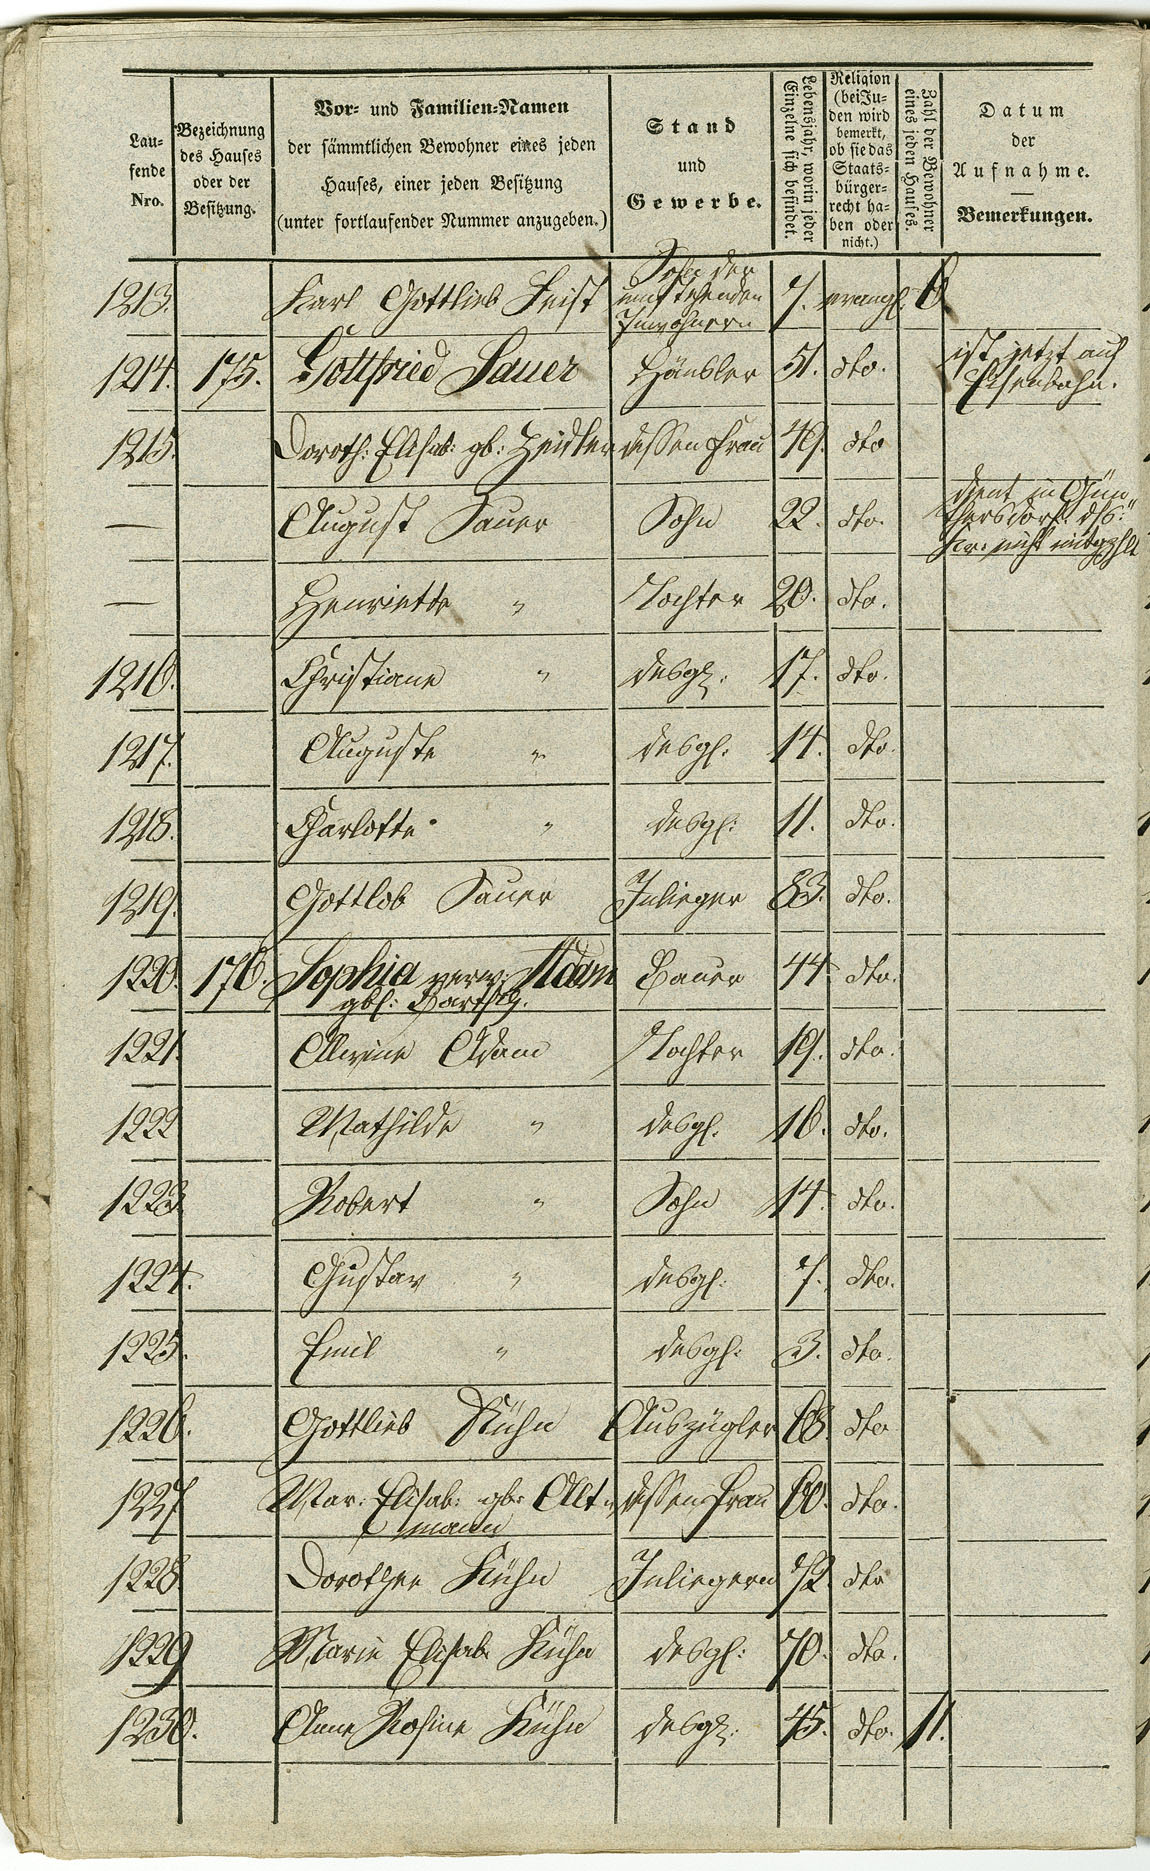 Lau-
fende
Nro.
Bezeichnung
des Hauses
oder der
Besitzung.
Vor- und Familien-Namen
der sämmtlichen Bewohner eines jeden
Hauses, einer jeden Besitzung
(unter fortlaufender Nummer anzugeben.)
Stand
und
Gewerbe.
Lebensjahr, worin jeder
Einzelne sich befindet.
Religion
(bei Ju-
den wird
bemerkt,
ob sie das
Staats-
bürger-
recht ha-
ben oder
nicht.)
Zahl der Bewohner
eines jeden Hauses.
Datum
der
Aufnahme.
Bemerkungen.
1213. Karl Gottlieb Feist Sohn der
Inwohnern 7. evangl. 6.
1214. 175. Gottfried Sauer Häusler 51. dto. ist jetzt auf
Eisenbahn.
1215. Doroth: Elisab: gb: Zeidler dessen Frau 49. dto
— August Sauer Sohn 22. dto. dient in Gün
thersdorf
nicht
— Henriette " Tochter 20. dto.
1216. Christiane " desgl. 17. dto.
1217. Auguste " desgl: 14. dto.
1218. Charlotte " desgl: 11. dto.
1219. Gottlob Sauer Inlieger 83. dto.
1220. 176. Sophia verw: Adam Bauer 44. dto.
1221. Allwine Adam Tochter 19. dto.
1222 Mathilde " desgl. 16. dto.
1223 Robert " Sohn 14. dto.
1224. Gustav " desgl: 7. dto.
1225. Emil " desgl: 3. dto.
1226. Gottlieb Kühn Auszügler 63. dto
1227 Mar: Elisab: gb: Alt- dessen Frau 60. dto.
mann
1228. Dorothee Kühn Inliegern 72. dto
1229 Marie Elisab. Kühn desgl: 70. dto.
1230. Anna Rosina Kühn desgl: 45. dto. 11.